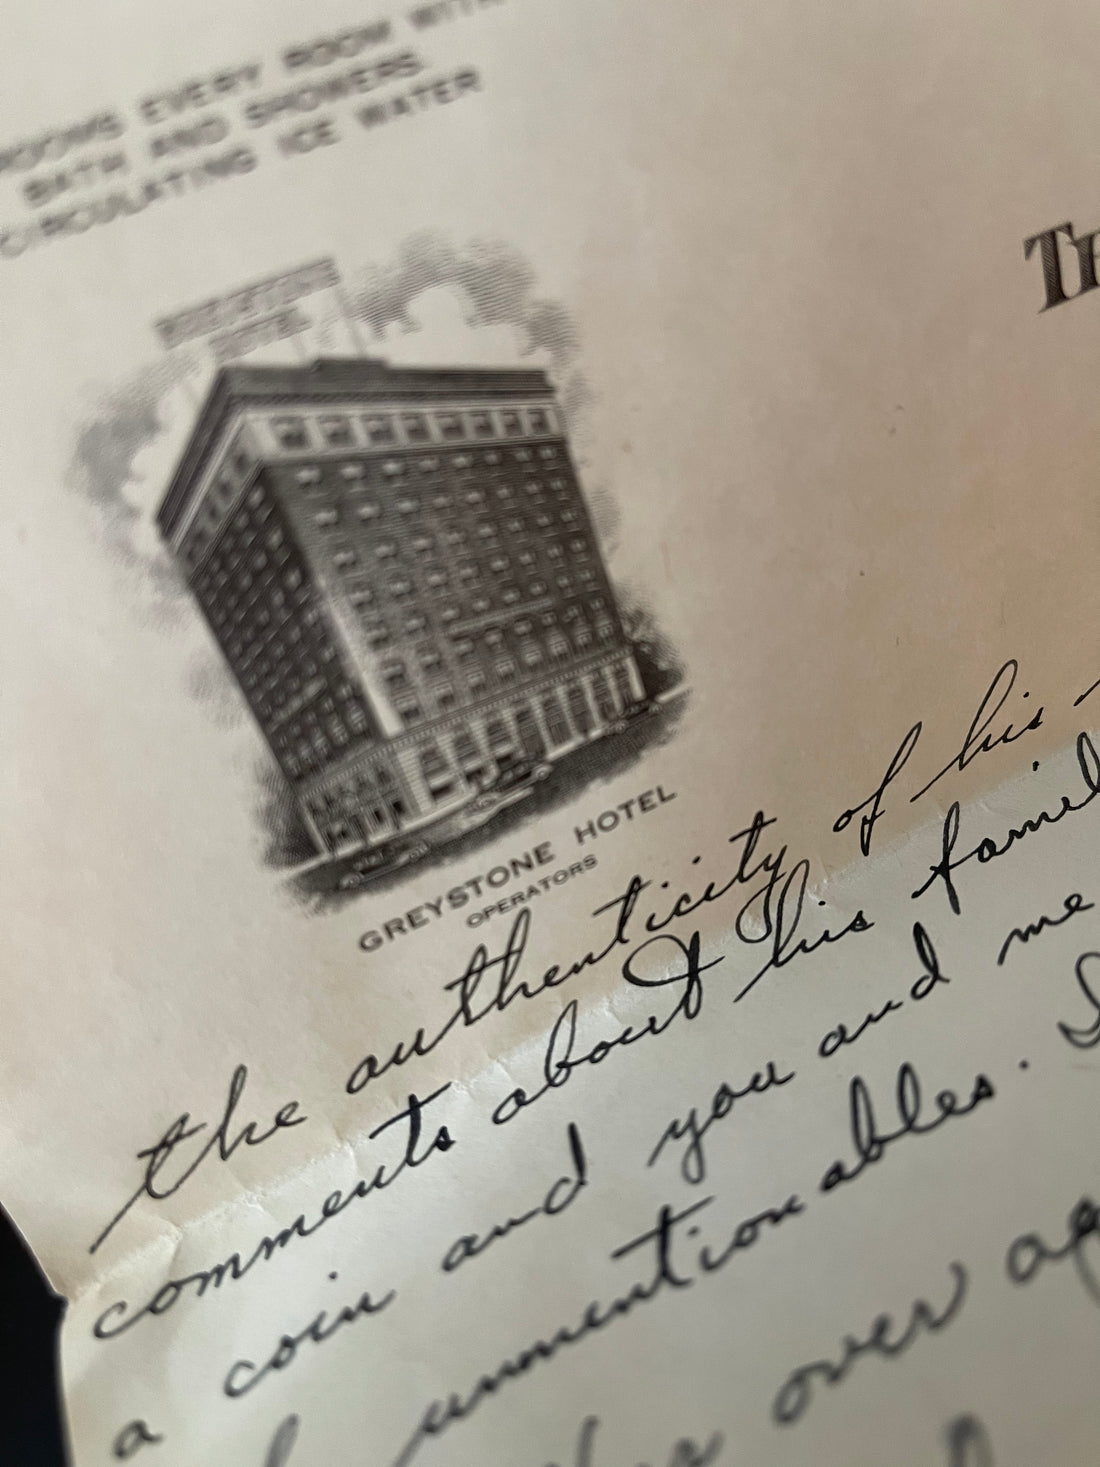 ROOMS EVERY ROOM WITH
BATH AND SHOWERS
CIRCULATING ICE WATER
GREYSTONE HOTEL
OPERATORS
the authenticity of his
comments about his
a coin and you and me
unmentionables. I
over